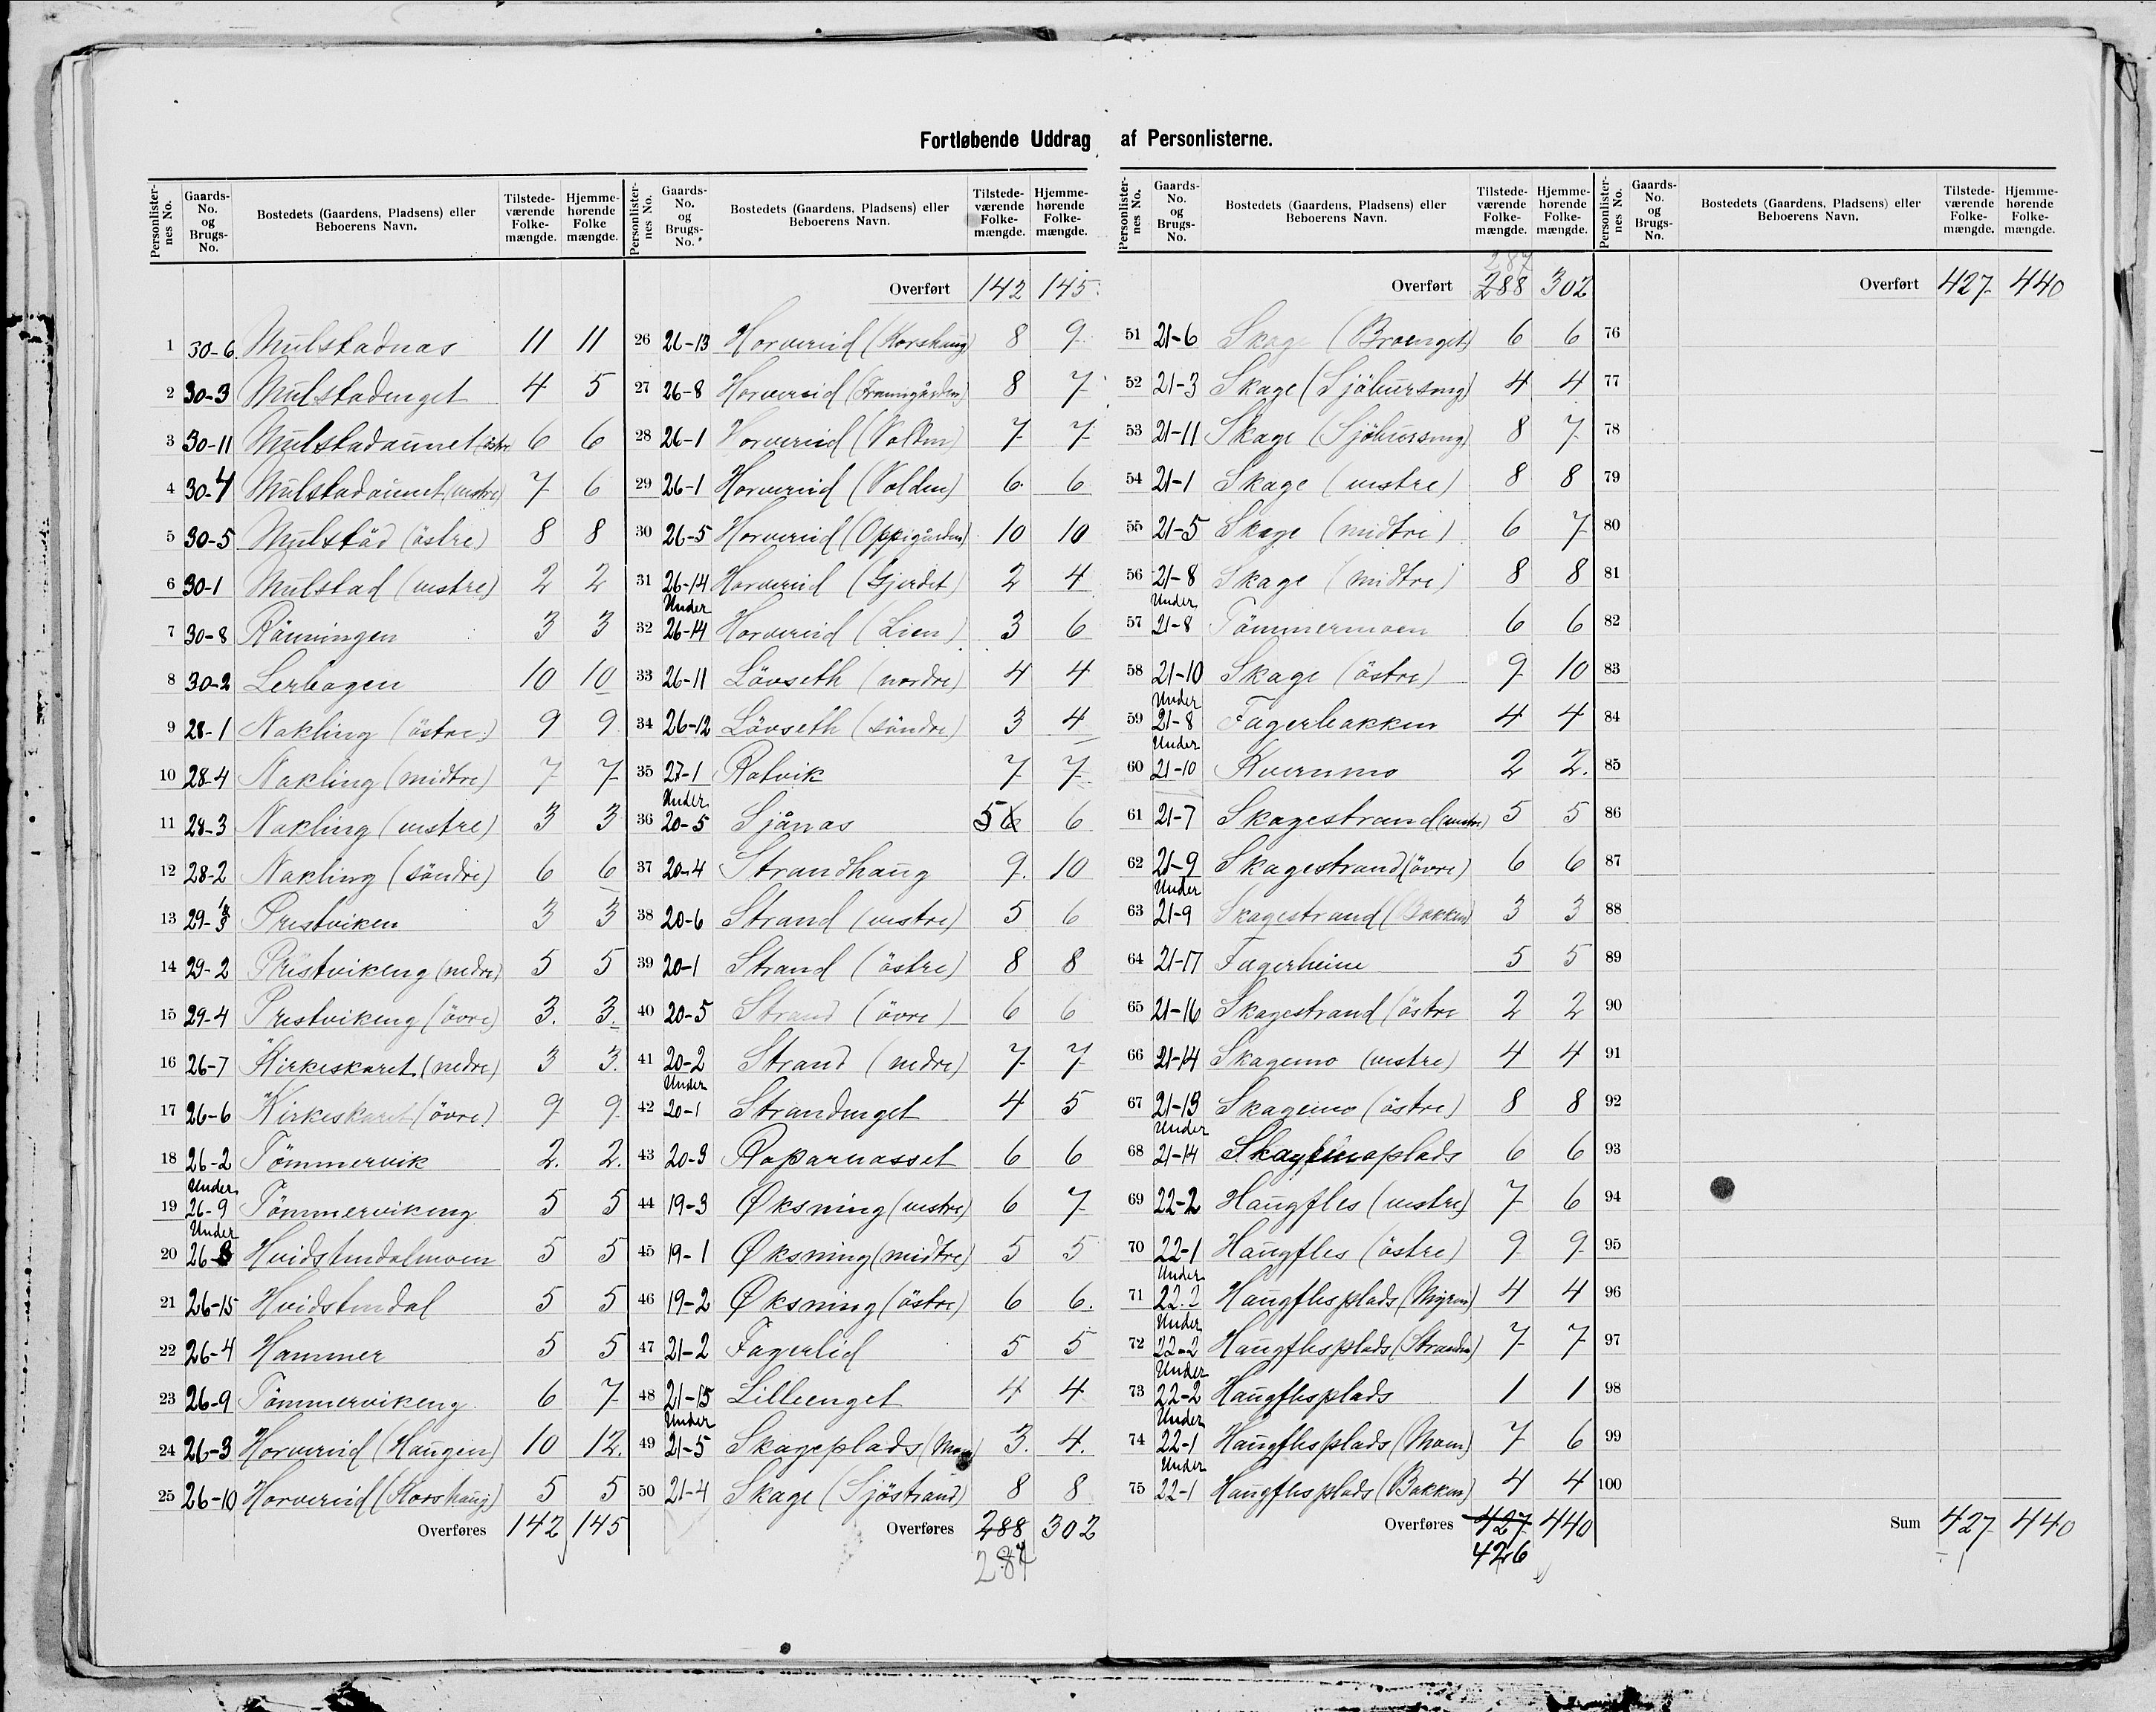 Fortløbende Uddrag af Personlisterne.
Personlisternes No. | Gaards-No. og Brugs-No. | Bostedets (Gaardens, Pladsens) eller Beboerens Navn. | Tilstedeværende Folkemængde. | Hjemmehørende Folkemængde.
1 30-6 Mulstadnas 11 11
2 30-3 Mulstadenget 4 5
3 30-11 Mulstadaunet (östre) 6 6
4 30-4 Mulstadaunet (vestre) 7 6
5 30-5 Mulstad (östre) 8 8
6 30-1 Mulstad (vestre) 2 2
7 30-8 Rönningen 3 3
8 30-2 Lerbagen 10 10
9 28-1 Nakling (östre) 9 9
10 28-4 Nakling (midtre) 7 7
11 28-3 Nakling (vestre) 3 3
12 28-2 Nakling (söndre) 6 6
13 29- Prestviken 3 3
14 29-2 Prestvikeng (nedre) 5 5
15 29-4 Prestvikeng (övre) 3. 3.
16 26-7 Kirkeskaret (nedre) 3 3.
17 26-6 Kirkeskaret (övre) 9 9
18 26-2 Tömmervik 2. 2.
19 Under 26-9 Tömmervikeng 5 5
20 Under 26-8 Hvidstendalmoen 5 5
21 26-15 Hvidstendal 5 5
22 26-4 Hammer 5 5
23 26-9 Tömmervikeng 6 7
24 26-3 Horvereid (Haugen) 10 12.
25 26-10 Horvereid (Korshaug) 5 5
Overføres 142 145
Overført 142 145
26 26-13 Horvereid (Korshaug) 8 9
27 26-8 Horvereid (Framigården) 8 7
28 26-1 Horvereid (Volden) 7 7
29 26-1 Horvereid (Volden) 6 6
30 26-5 Horvereid (Oppigården) 10 10
31 26-14 Horvereid (Gjerdet) 2 4
32 Under 26-14 Horvereid (Lien) 3 6
33 26-11 Lövseth (nordre) 4 4
34 26-12 Lövseth (söndre) 3 4
35 27-1 Ratvik 7 7
36 Under 20-5 Sjånas 5 6 6
37 20-4 Strandhaug 9. 10
38 20-6 Strand (vestre) 5 6
39 20-1 Strand (östre) 8 8
40 20-5 Strand (övre) 6 6
41 20-2 Strand (nedre) 7 7
42 Under 20-1 Strandenget 4 5
43 20-3 Raparnasset 6 6
44 19-3 Øksning (vestre) 6 7
45 19-1 Øksning (midtre) 5 5
46 19-2 Øksning (östre) 6 6.
47 21-2 Fagerlid 5 5
48 21-15 Lilleenget 4 4
49 Under 21-5 Skageplads (Moen) 3. 4.
50 21-4 Skage (Sjöstrand) 8 8
Overføres 288 302
287
287
Overført 288 302
51 21-6 Skage (Braenget) 6 6
52 21-3 Skage (Sjöbursmg) 4 4
53 21-11 Skage (Sjöbursmg) 8 7
54 21-1 Skage (vestre) 8 8
55 21-5 Skage (midtre) 6 7
56 21-8 Skage (midtre) 8 8
57 Under 21-8 Tömmermoen 6 6
58 21-10 Skage (östre) 9 10
59 Under 21-8 Fagerbakken 4 4
60 Under 21-10 Kvernmo 2 2.
61 21-7 Skagestrand (vestre) 5 5
62 21-9 Skagestrand (övre) 6 6
63 Under 21-9 Skagestrand (Bakken) 3 3
64 21-17 Fagerheim 5 5
65 21-16 Skagestrand (östre 2 2
66 21-14 Skagemo (vestre) 4 4
67 21-13 Skagemo (östre) 8 8
68 Under 21-14 Skagemoplads 6 6
69 22-2 Haugfles (vestre) 7 6
70 22-1 Haugfles (östre) 9 9
71 Under 22-2 Haugflesplads (Myren) 4 4
72 Under 22-2 Haugflesplads (Stranden) 7 7
73 Under 22-2 Haugflesplads 1 1
74 Under 22-1 Haugflesplads (Moen) 7 6
75 Under 22-1 Haugflesplads (Bakken) 4 4
Overføres 427 440
426
Overført 427 440
76
77
78
79
80
81
82
83
84
85
86
87
88
89
90
91
92
93
94
95
96
97
98
99
100
Sum 427 440